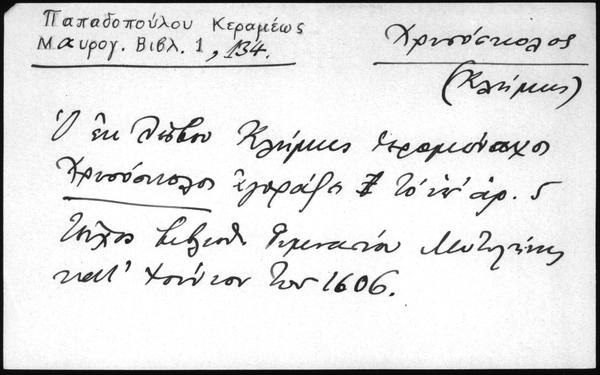 Παπαδοπούλου Κεραμέως
Μαυρογ. Βιβλ. 1, 134.
Χρυσόσκολος
(Κλήμης)
Ὁ ἐκ Λέσβου Κλήμης ἱερομόναχος
Χρυσόσκολος ἔγραψε τὸ ὑπ' ἀρ. 5
τεῦχος βιβλιοθ. Γυμνασίου Μυτιλήνης
κατ' Ἰούνιον τοῦ 1606.